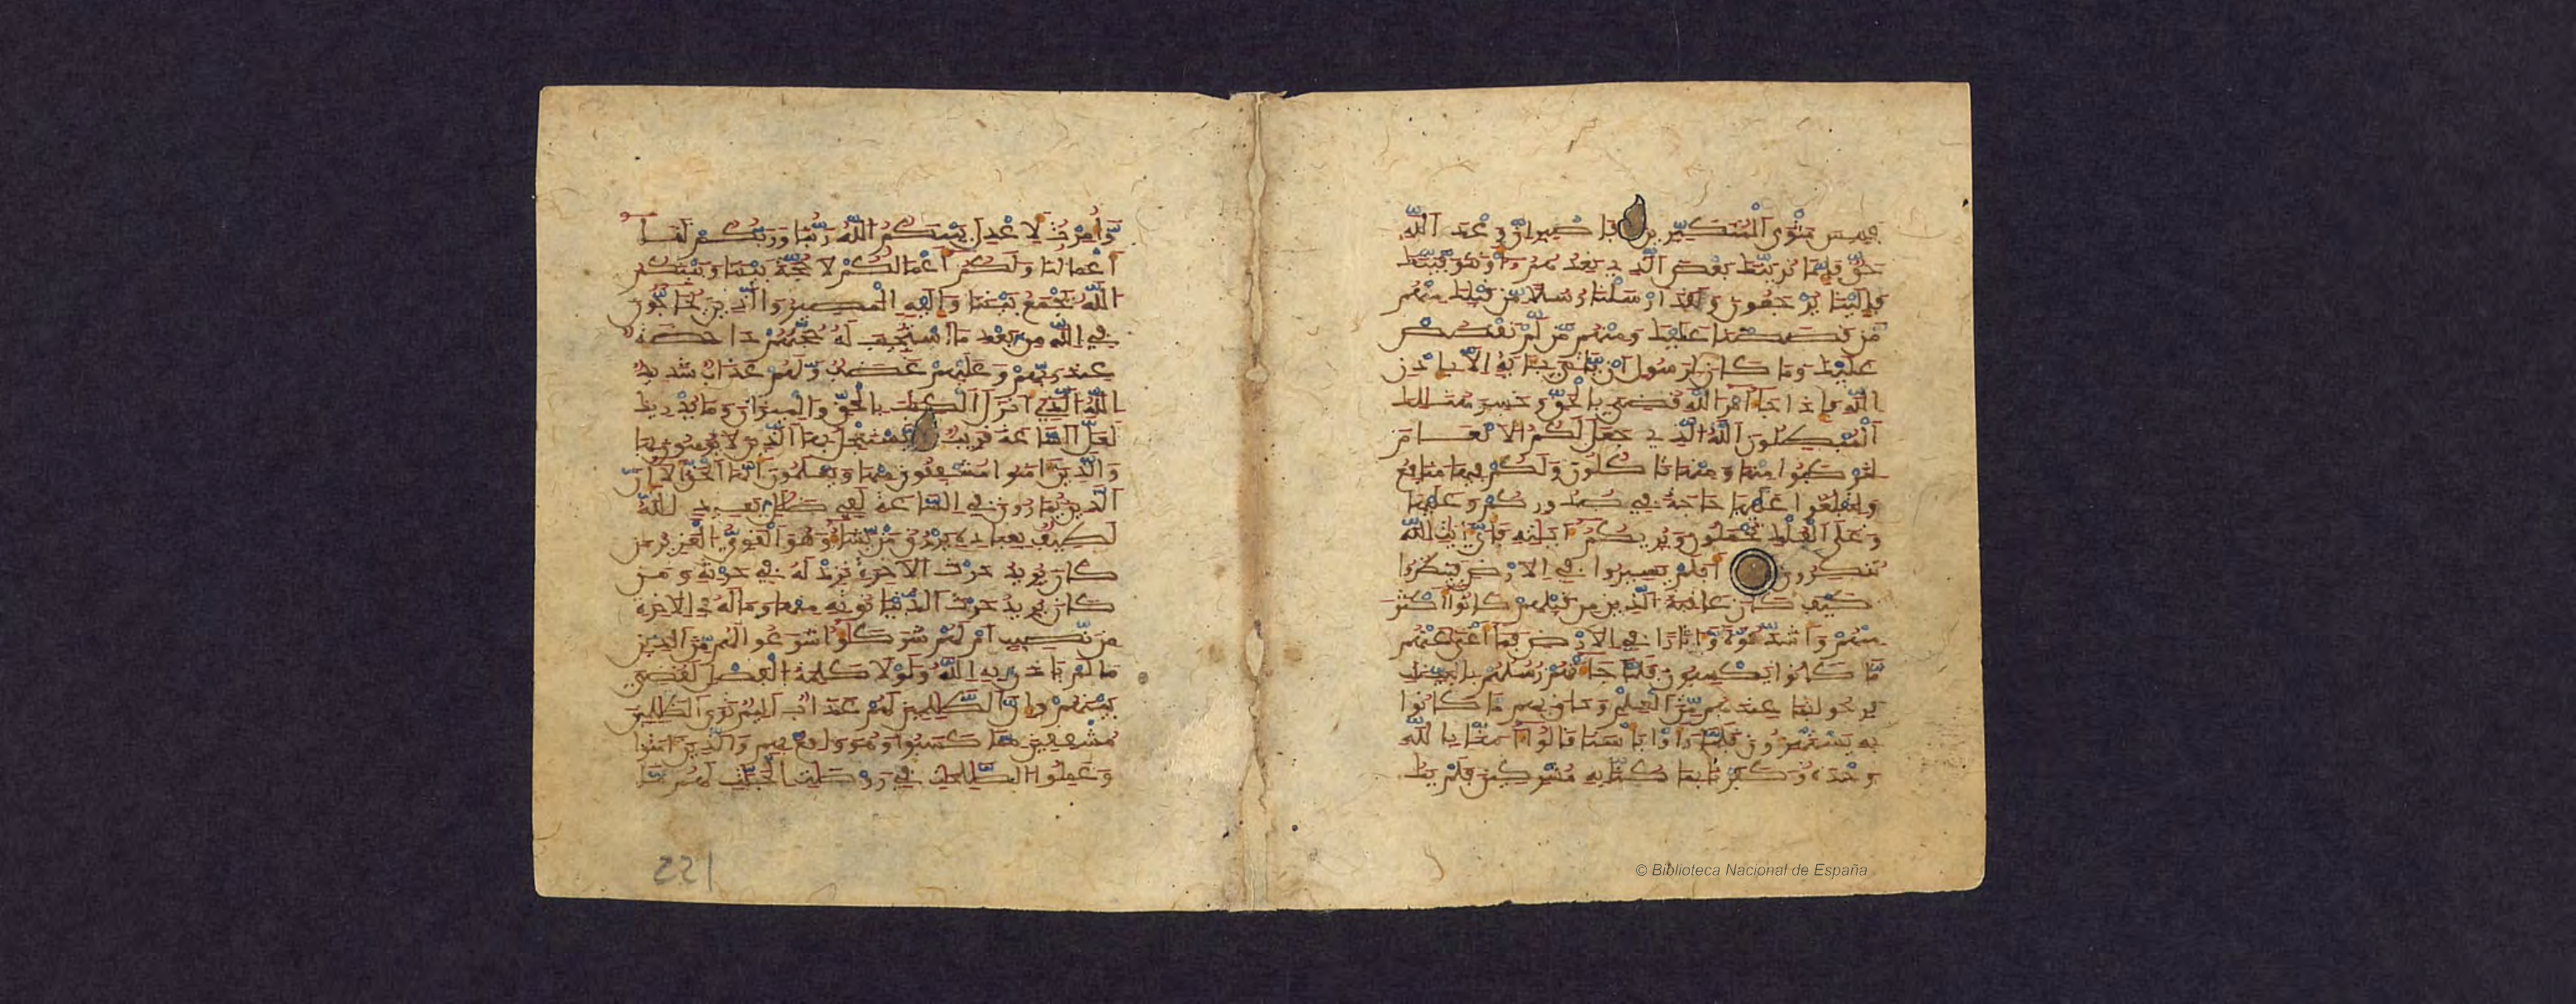 فبيس مثوى المتكبرين فاصبر ان وعد الله
حق فإما نرينك بعض الذي نعدهم أو نتوفينك
فإلينا يرجعون ولقد ارسلنا رسلا من قبلك منهم
من قصصنا عليك ومنهم من لم نقصص
عليك وما كان لرسول ان ياتي بـاية الا بإذن
الله فإذا جا امر الله قضي بالحق وخسر هنالك
المبطلون الله الذي جعل لكم الانعام
لتركبوا منها ومنها تاكلون ولكم فيها منافع
ولتبلغوا عليها حاجة في صدوركم وعليها
وعلى الفلك تحملون ويريكم ايته فاي ايت الله
تنكرون افلم يسيروا في الارض فينظروا
كيف كان عاقبة الذين من قبلهم كانوا اكثر
منهم واشد قوة واثارا في الارض فما اغنى عنهم
ما كانوا يكسبون فلما جاتهم رسلهم بالبينت
فرحوا بما عندهم من العلم وحاق بهم ما كانوا
به يستهزون فلما راوا باسنا قالوا امنا بالله
وحده وكفرنا بما كنا به مشركين فلم يك
© Biblioteca Nacional de España
وأمرت لاعدل بينكم الله ربنا وربكم لنا
اعملنا ولكم اعملكم لا حجة بيننا وبينكم
الله يجمع بيننا وإليه المصير والذين يحاجون
في الله من بعد ما استجيب له حجتهم داحضة
عند ربهم وعليهم غضب ولهم عذاب شديد
الله الذي انزل الكتب بالحق والميزان وما يدريك
لعل الساعة قريب يستعجل بها الذين لا يومنون بها
والذين امنوا مشفقون منها ويعلمون انها الحق الا ان
الذين يمارون في الساعة لفي ضلل بعيد الله
لطيف بعباده يرزق من يشا وهو القوي العزيز من
كان يريد حرث الاخرة نزد له في حرثه ومن
كان يريد حرث الدنيا نوته منها وما له في الاخرة
من نصيب ام لهم شركوا شرعوا لهم من الدين
ما لم ياذن به الله ولولا كلمة الفصل لقضي
بينهم وإن الظلمين لهم عذاب اليم ترى الظلمين
مشفقين مما كسبوا وهو واقع بهم والذين امنوا
وعملوا الصلحت في روضات الجنات لهم ما
221